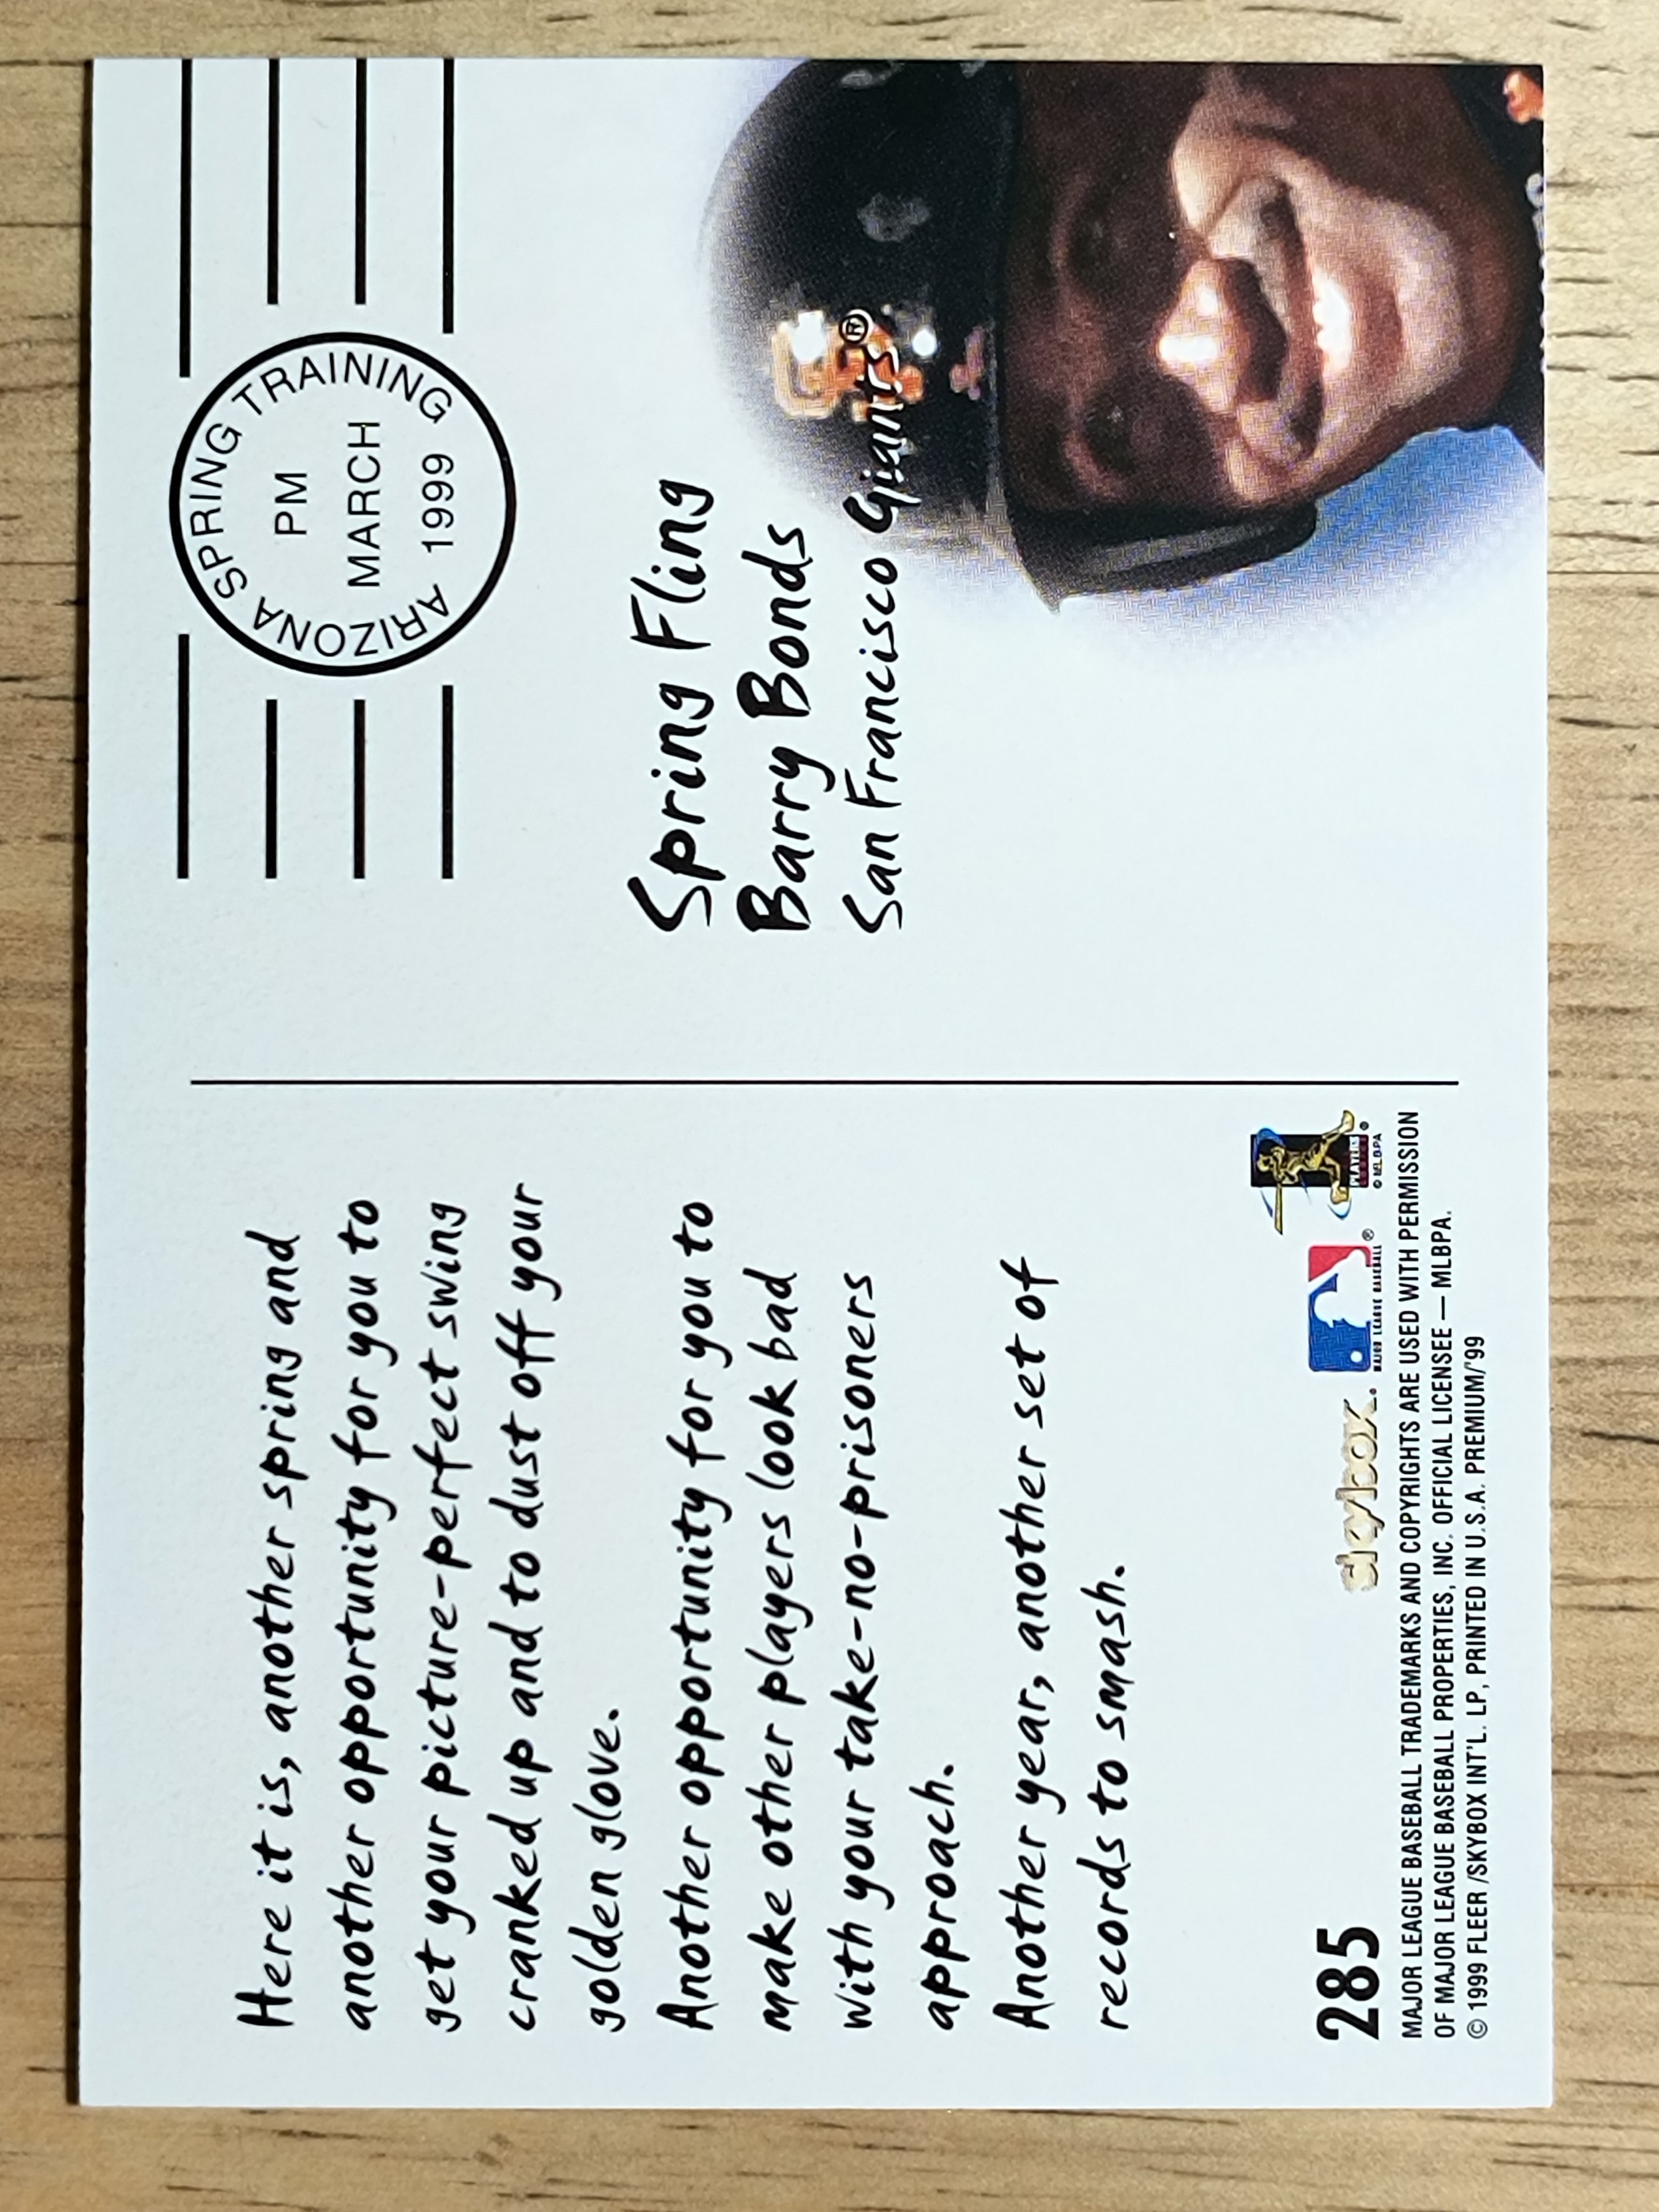 Here it is, another spring and
another opportunity for you to
get your picture-perfect swing
cranked up and to dust off your
golden glove.
Another opportunity for you to
make other players look bad
with your take-no-prisoners
approach.
Another year, another set of
records to smash.
285
skybox
MAJOR LEAGUE BASEBALL ®
PLAYERS
© MLBPA ®
MAJOR LEAGUE BASEBALL TRADEMARKS AND COPYRIGHTS ARE USED WITH PERMISSION
OF MAJOR LEAGUE BASEBALL PROPERTIES, INC. OFFICIAL LICENSEE — MLBPA.
© 1999 FLEER /SKYBOX INT'L. LP, PRINTED IN U.S.A. PREMIUM/'99
ARIZONA SPRING TRAINING
PM
MARCH
1999
Spring Fling
Barry Bonds
San Francisco Giants®